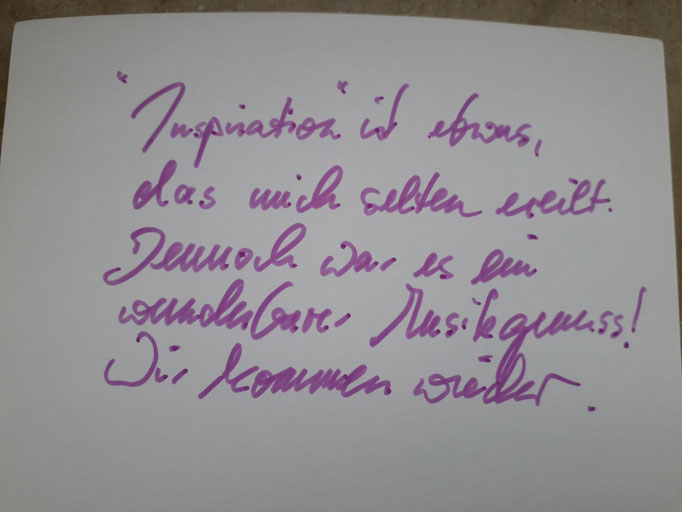 "Inspiration" ist etwas,
das mich selten ereilt.
Dennoch war es ein
wunderbarer Musikgenuss!
Wir kommen wieder.